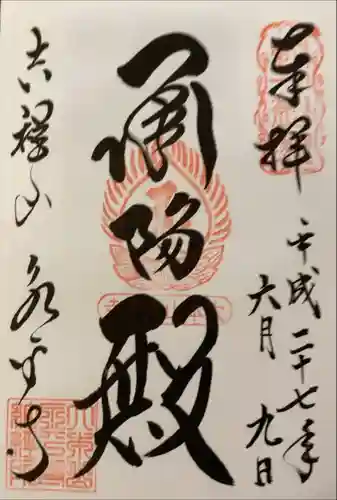 奉拝
平成二十七年
六月九日
承陽殿
吉祥山永平寺